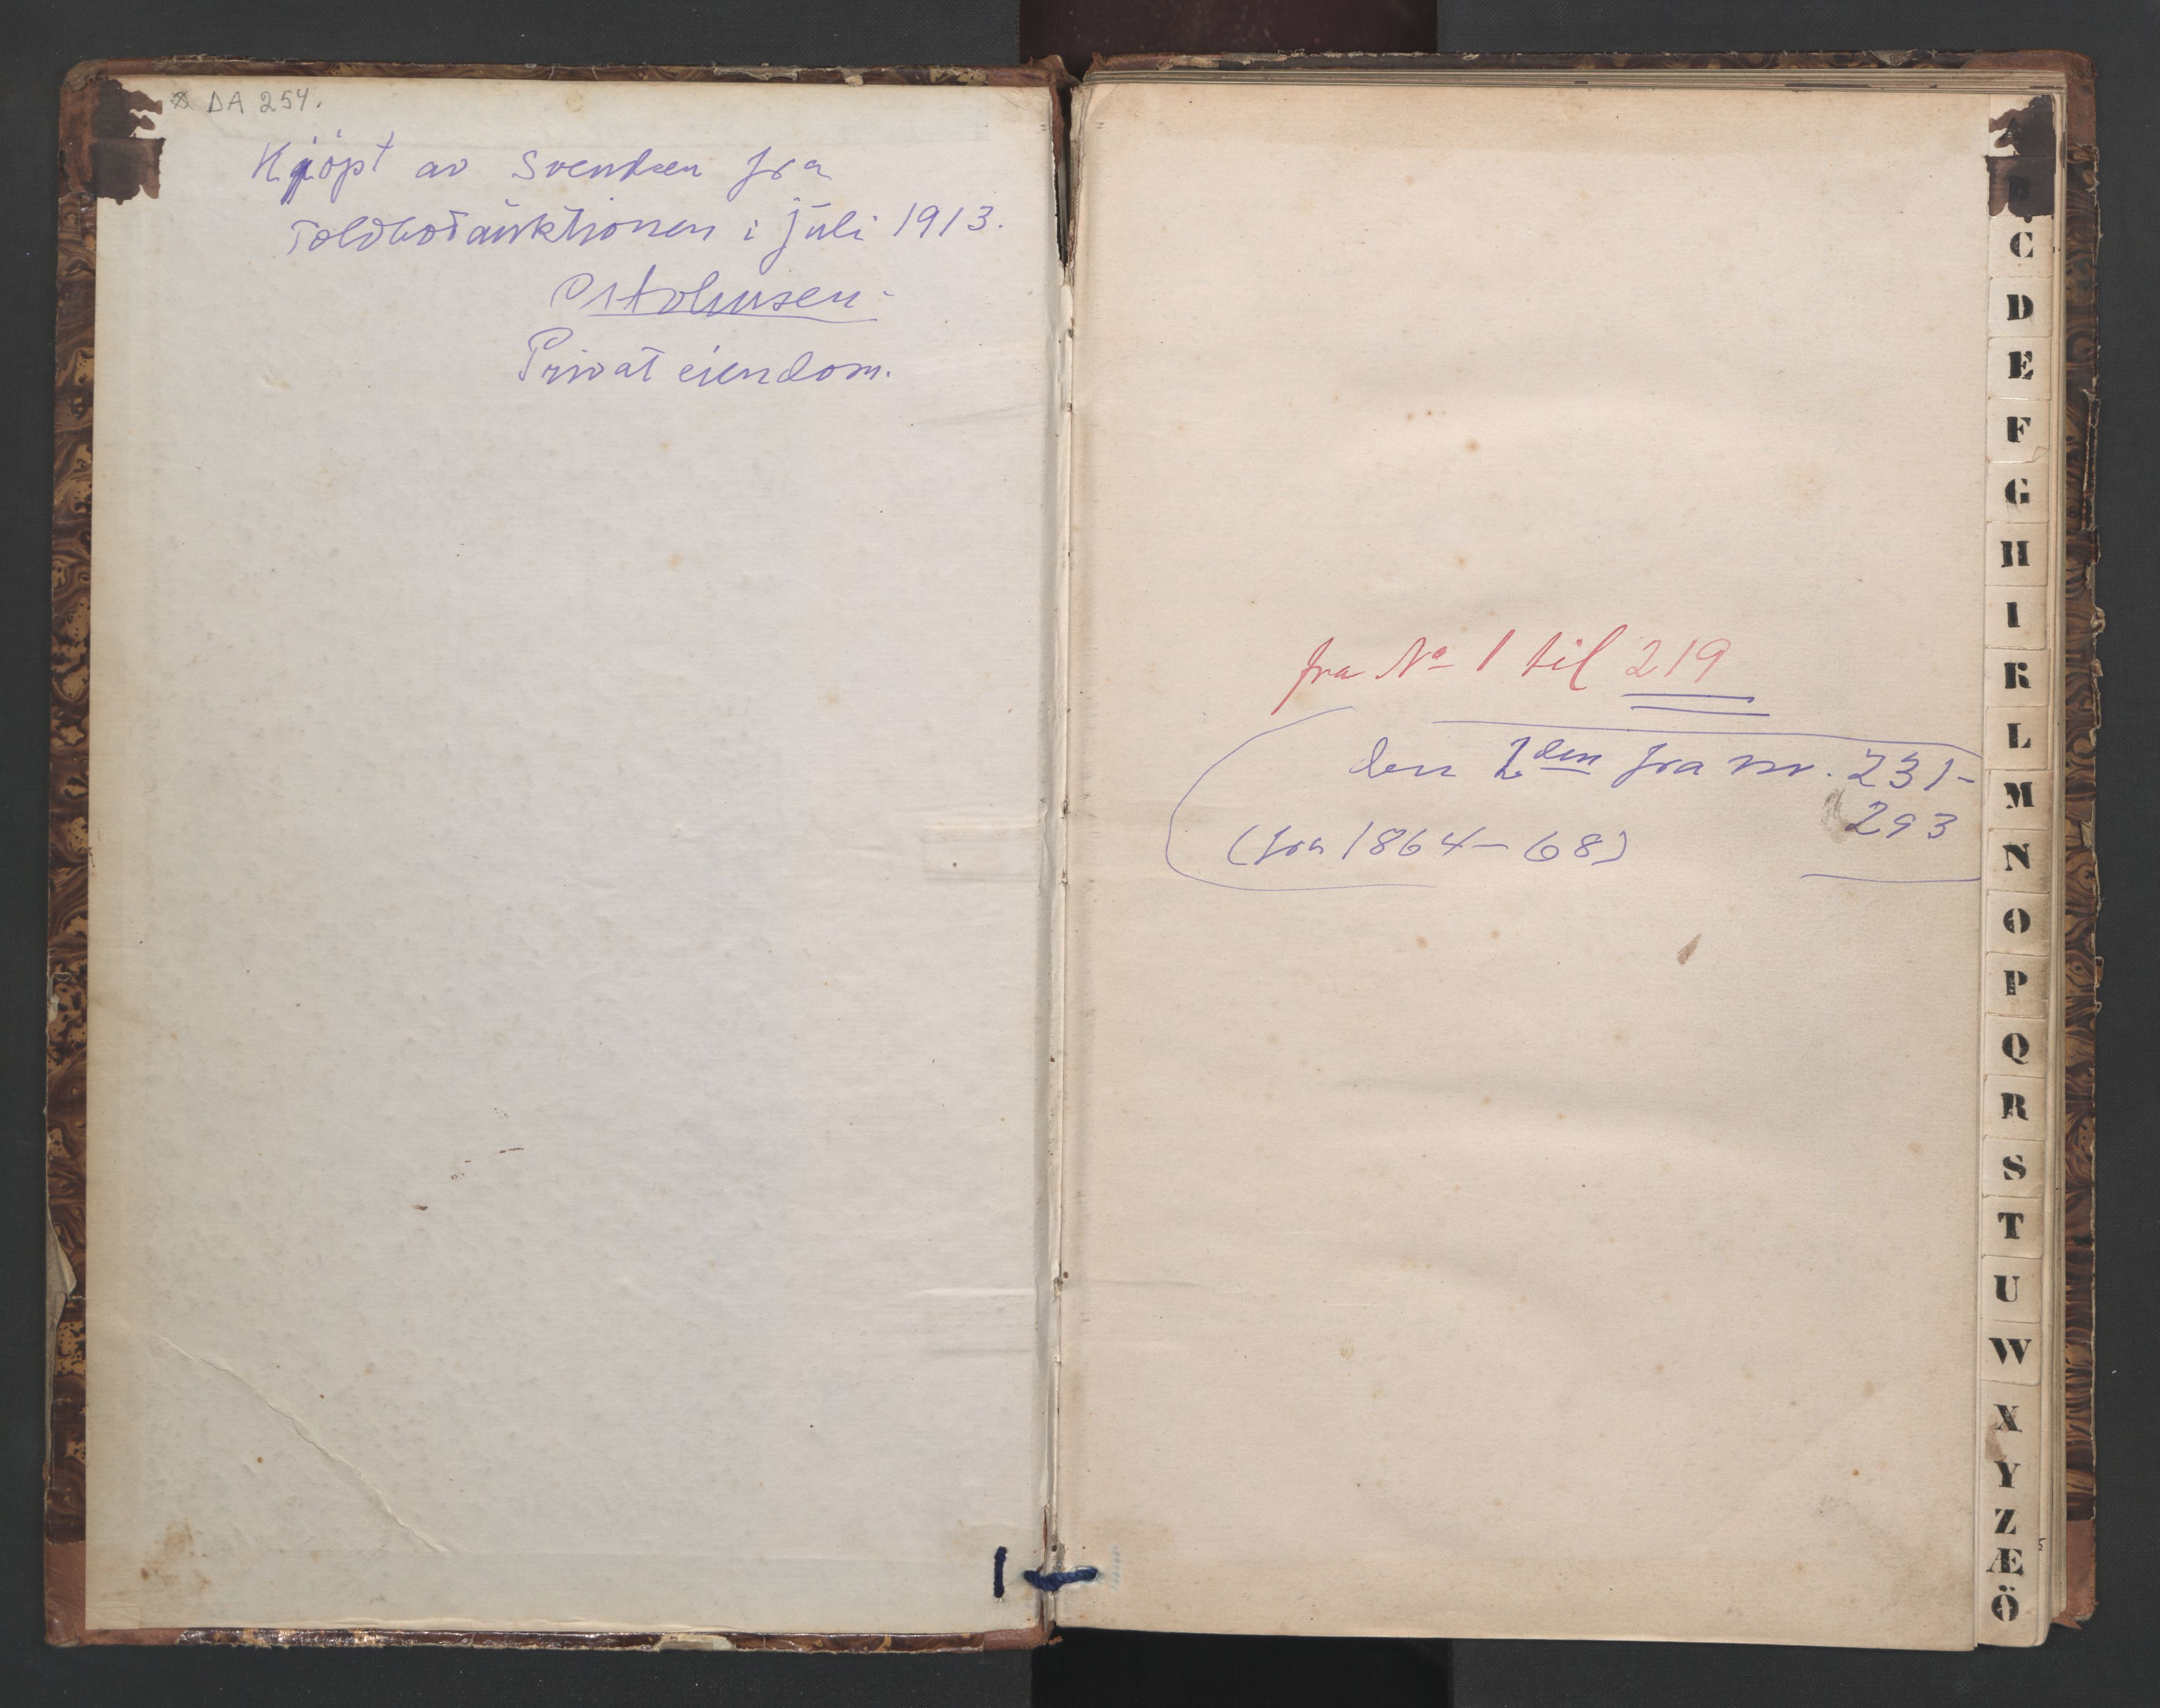 DA 254.
Kjöpt av Svendsen fra
Toldbodauktionen i juli 1913.
Privat eiendom.
fra No 1 til 219
den 2den fra nr. 231-
293
(fra 1864-68)
C
D
E
F
G
H
I
K
L
M
N
O
P
Q
R
S
T
U
W
X
Y
Z
Æ
Ö